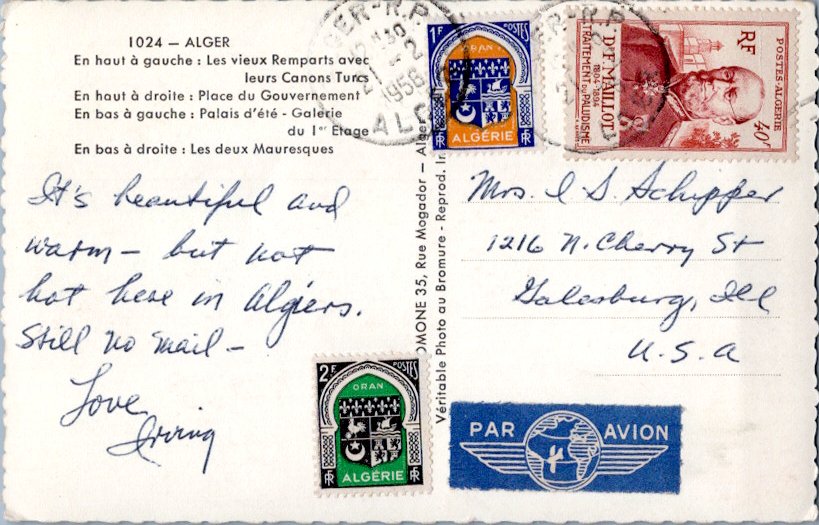 1024 — ALGER
En haut à gauche : Les vieux Remparts avec
leurs Canons Turcs
En haut à droite : Place du Gouvernement
En bas à gauche : Palais d'été - Galerie
du 1er Etage
En bas à droite : Les deux Mauresques
It's beautiful and
warm — but not
hot here in Algiers.
Still no mail —
Love
Irving
OMONE 35, Rue Mogador — Alger
Véritable Photo au Bromure - Reprod. In
ALGER-R.P.
1958
1F POSTES
ORAN
RF RF
ALGÉRIE
POSTES-ALGERIE
RF
40F
Dr F. MAILLOT
1804-1894
TRAITEMENT DU PALUDISME
Mrs. I S. Schupper
1216 N. Cherry St
Galesburg, Ill
U.S.A
2F POSTES
ORAN
RF RF
ALGÉRIE
PAR AVION